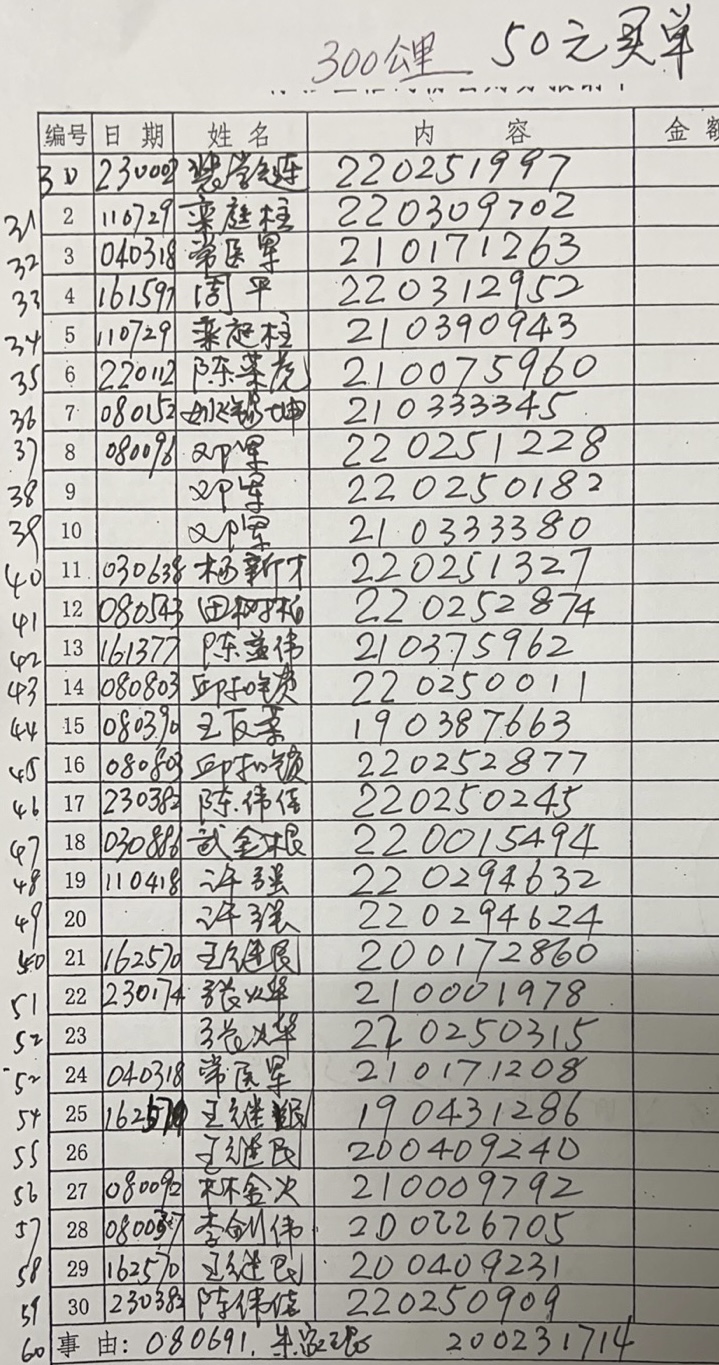 300公里 50元买单
编号 日期 姓名 内容 金额
30 230002 220251997
31 2 110729 栾庭柱 220309702
32 3 040318 常医军 210171263
33 4 161597 周平 220312952
34 5 110729 栾庭柱 210390943
35 6 220112 陈荣虎 210075960
36 7 080152 姚锦坤 210333345
37 8 080096 邓军 220251228
38 9 邓军 220250182
39 10 邓军 210333380
40 11 030638 杨新才 220251327
41 12 080543 田树柏 220252874
42 13 161377 陈益伟 210375962
43 14 080803 邱和锁 220250011
44 15 080390 王友 190387663
45 16 080803 邱和锁 220252877
46 17 230382 陈伟信 220250245
47 18 030886 武金根 220015494
48 19 110418 许强 220294632
49 20 许强 220294624
50 21 162570 王继民 200172860
51 22 230174 张火华 210001978
52 23 张火华 220250315
52 24 040318 常医军 210171208
54 25 162570 王继民 190431286
55 26 王继民 200409240
56 27 080092 林金次 210009792
57 28 080057 李剑伟 200226705
58 29 162570 王继民 200409231
59 30 230382 陈伟信 220250909
60 事由: 080691. 朱 200231714